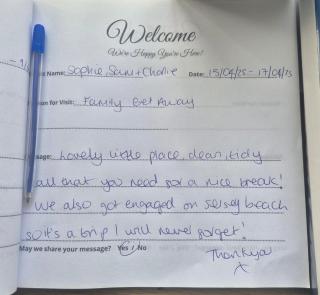 Welcome
We're Happy You're Here!
Name: Sophie, Sam + Charlie Date: 15/04/25 - 17/04/25
on for Visit: Family Get Away
sage: Lovely little place, clean, tidy
all that you need for a nice break!
We also got engaged on beach
so it's a trip I will never forget!
May we share your message? Yes / No
Thankyou
x